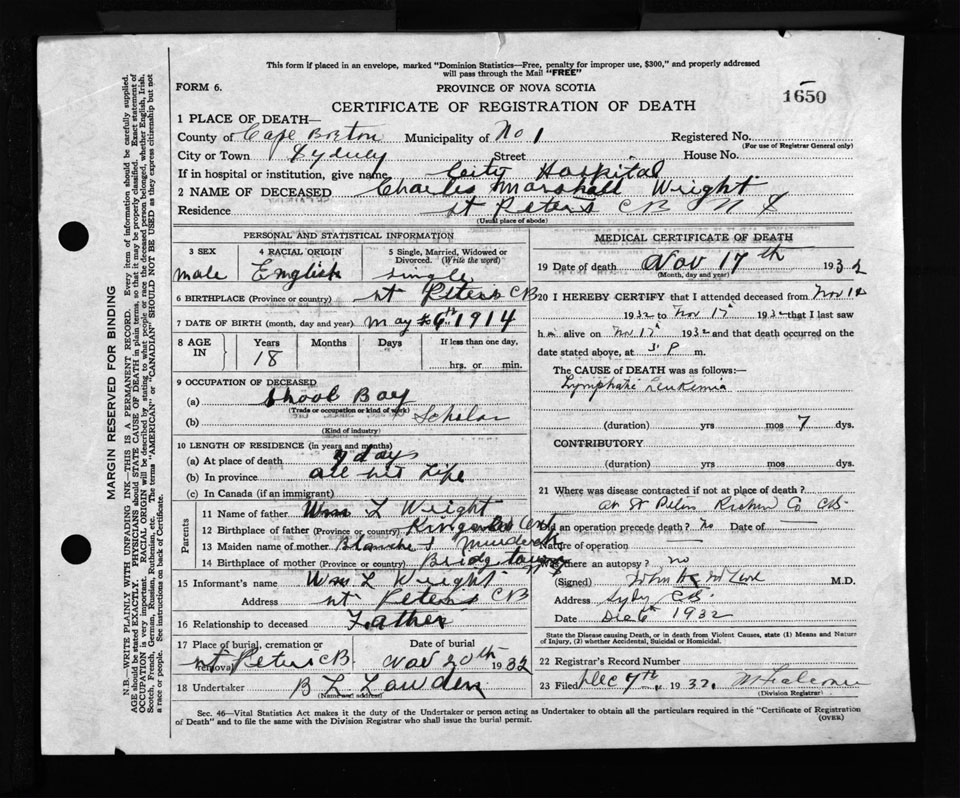 This form if placed in an envelope, marked "Dominion Statistics—Free, penalty for improper use, $300," and properly addressed
will pass through the Mail "FREE"
FORM 6.
PROVINCE OF NOVA SCOTIA
1650
CERTIFICATE OF REGISTRATION OF DEATH
1 PLACE OF DEATH—
County of Cape Breton Municipality of No 1 Registered No.
(For use of Registrar General only)
City or Town Sydney Street House No.
If in hospital or institution, give name City Hospital
2 NAME OF DECEASED Charles Marshall Wright
Residence St Peters CB N S
(Usual place of abode)
PERSONAL AND STATISTICAL INFORMATION
3 SEX 4 RACIAL ORIGIN 5 Single, Married, Widowed or
Divorced. (Write the word)
male English single
6 BIRTHPLACE (Province or country) St Peters CB
7 DATE OF BIRTH (month, day and year) May 6th 1914
8 AGE IN Years Months Days If less than one day,
18 hrs. or min.
9 OCCUPATION OF DECEASED
(a) Shool Boy
(Trade or occupation or kind of work)
(b) Scholar
(Kind of industry)
10 LENGTH OF RESIDENCE (in years and months)
(a) At place of death 7 days
(b) In province all his Life
(c) In Canada (if an immigrant)
Parents
11 Name of father Wm L Wright
12 Birthplace of father (Province or country) Kings Co
13 Maiden name of mother Blanche Murdock
14 Birthplace of mother (Province or country) Bridgetown
15 Informant's name Wm L Wright
Address St Peters CB
16 Relationship to deceased Father
17 Place of burial, cremation or removal Date of burial
St Peters CB Nov 20th 1932
18 Undertaker B L
MEDICAL CERTIFICATE OF DEATH
19 Date of death Nov 17th 1932
(Month, day and year)
20 I HEREBY CERTIFY that I attended deceased from Nov
1932 to Nov 17 1932 that I last saw
h alive on Nov 17 1932 and that death occurred on
date stated above, at 3 P m.
The CAUSE of DEATH was as follows:—
Lymphatic Leukemia
(duration) yrs mos 7 dys.
CONTRIBUTORY
(duration) yrs. mos. dys.
21 Where was disease contracted if not at place of death?
at St Peters Richm Co CB
Did an operation precede death? no Date of —
Nature of operation —
Was there an autopsy? no
(Signed) John M.D.
Address Sydy CB.
Date Dec 6th 1932
State the Disease causing Death, or in death from Violent Causes, state (1) Means and Nature
of Injury, (2) whether Accidental, Suicidal or Homicidal.
22 Registrar's Record Number
23 Filed Dec 7th 1932.
(Division Registrar)
Sec. 46—Vital Statistics Act makes it the duty of the Undertaker or person acting as Undertaker to obtain all the particulars required in the "Certificate of Registration
of Death" and to file the same with the Division Registrar who shall issue the burial permit.
(OVER)
MARGIN RESERVED FOR BINDING
N.B.—WRITE PLAINLY WITH UNFADING INK—THIS IS A PERMANENT RECORD. Every item of information should be carefully supplied.
AGE should be stated EXACTLY. PHYSICIANS should STATE CAUSE OF DEATH in plain terms, so that it may be properly classified. Exact statement of
OCCUPATION is very important. RACIAL ORIGIN will be described by stating to what people or race the deceased person belonged, whether English, Irish,
Scotch, French, German, Russian, Ruthenian, etc. The terms "AMERICAN" or "CANADIAN" SHOULD NOT BE USED as they express citizenship but not
a race or people. See instructions on back of Certificate.